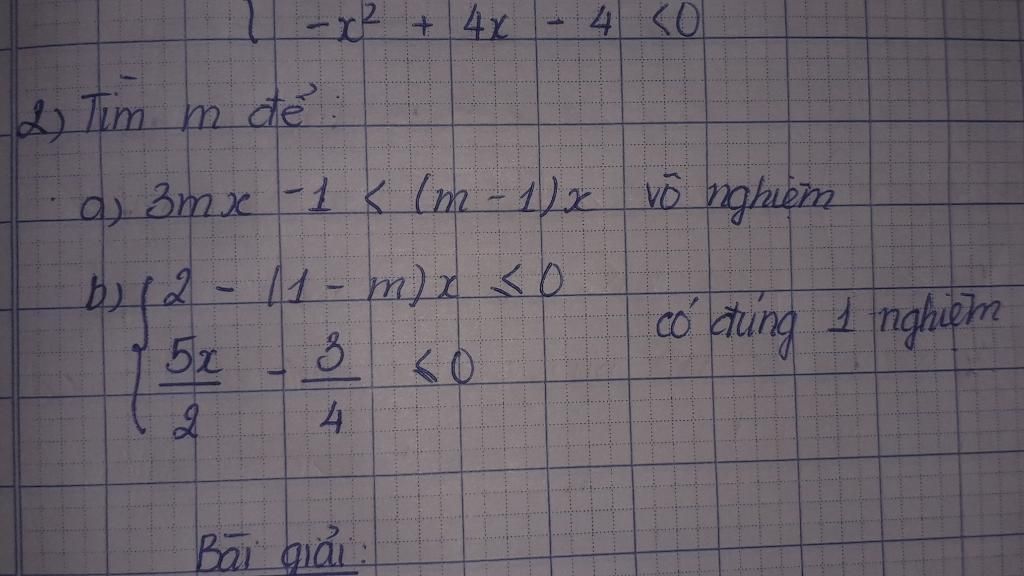 { -x² + 4x - 4 < 0
2) Tìm m để :
a) 3mx - 1 < (m - 1)x vô nghiệm
b) { 2 - (1 - m)x ≤ 0
5x/2 - 3/4 ≤ 0 có đúng 1 nghiệm
Bài giải :